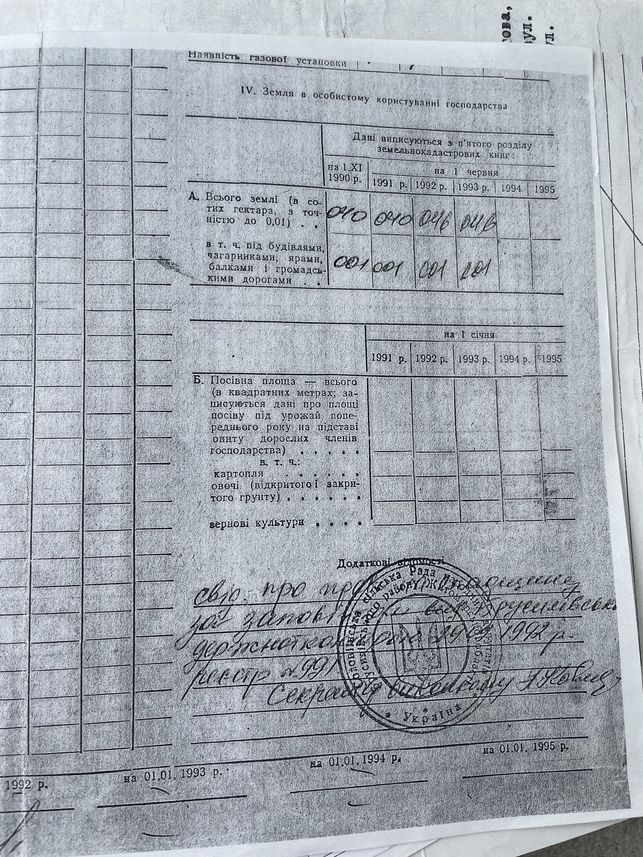 ова,
вул.
ул.
Наявність газової установки
IV. Земля в особистому користуванні господарства
Дані виписуються з п'ятого розділу
земельнокадастрових книг
на 1.XI
1990 р.
на 1 червня
1991 р. 1992 р. 1993 р. 1994 1995
А. Всього землі (в со-
тих гектара, з точ-
ністю до 0,01) . .
040 040 046 046
в т. ч. під будівлями,
чагарниками, ярами,
балками і громадсь-
кими дорогами . .
001 001 001 001
на 1 січня
1991 р. 1992 р. 1993 р. 1994 р. 1995
Б. Посівна площа — всього
(в квадратних метрах; за-
писуються дані про площі
посіву під урожай попе-
реднього року на підставі
опиту дорослих членів
господарства) . . . . .
в. т. ч.:
картопля . . . . . .
овочі (відкритого і закри-
того грунту) . . . . . .
вернові культури . . . .
Додаткові відомості
свід. про право на спадщину
за заповітом
держнотконт 1992 р.
реєстр №
Секретар виконкому
сільська Рада
Україна
1992 р.
на 01.01. 1993 р.
на 01.01. 1994 р.
на 01.01. 1995 р.